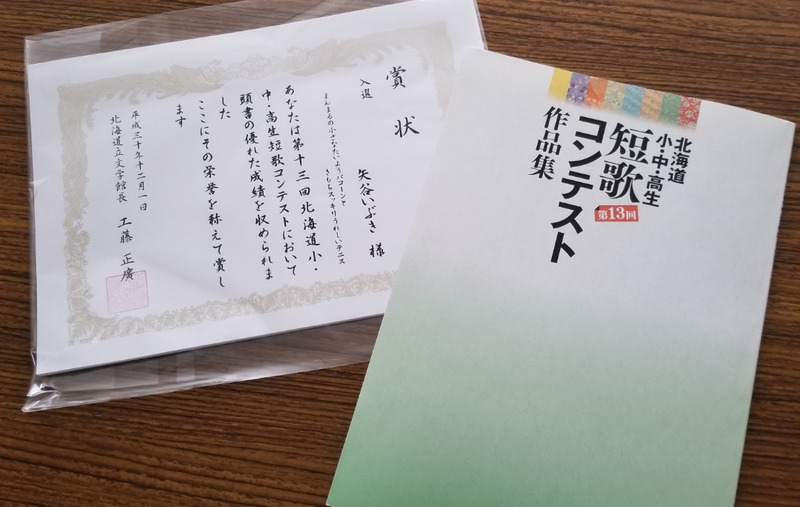 賞状
入選
矢谷いぶき 様
まんまるの小さなたいようパコーンと
きもちスッキリうれしいテニス
あなたは第十三回北海道小・
中・高生短歌コンテストにおいて
頭書の優れた成績を収められま
した
ここにその栄誉を称えて賞し
ます
平成三十年十二月一日
北海道立文学館長 工藤 正廣
北海道
小・中・高生
短歌
第13回
コンテスト
作品集